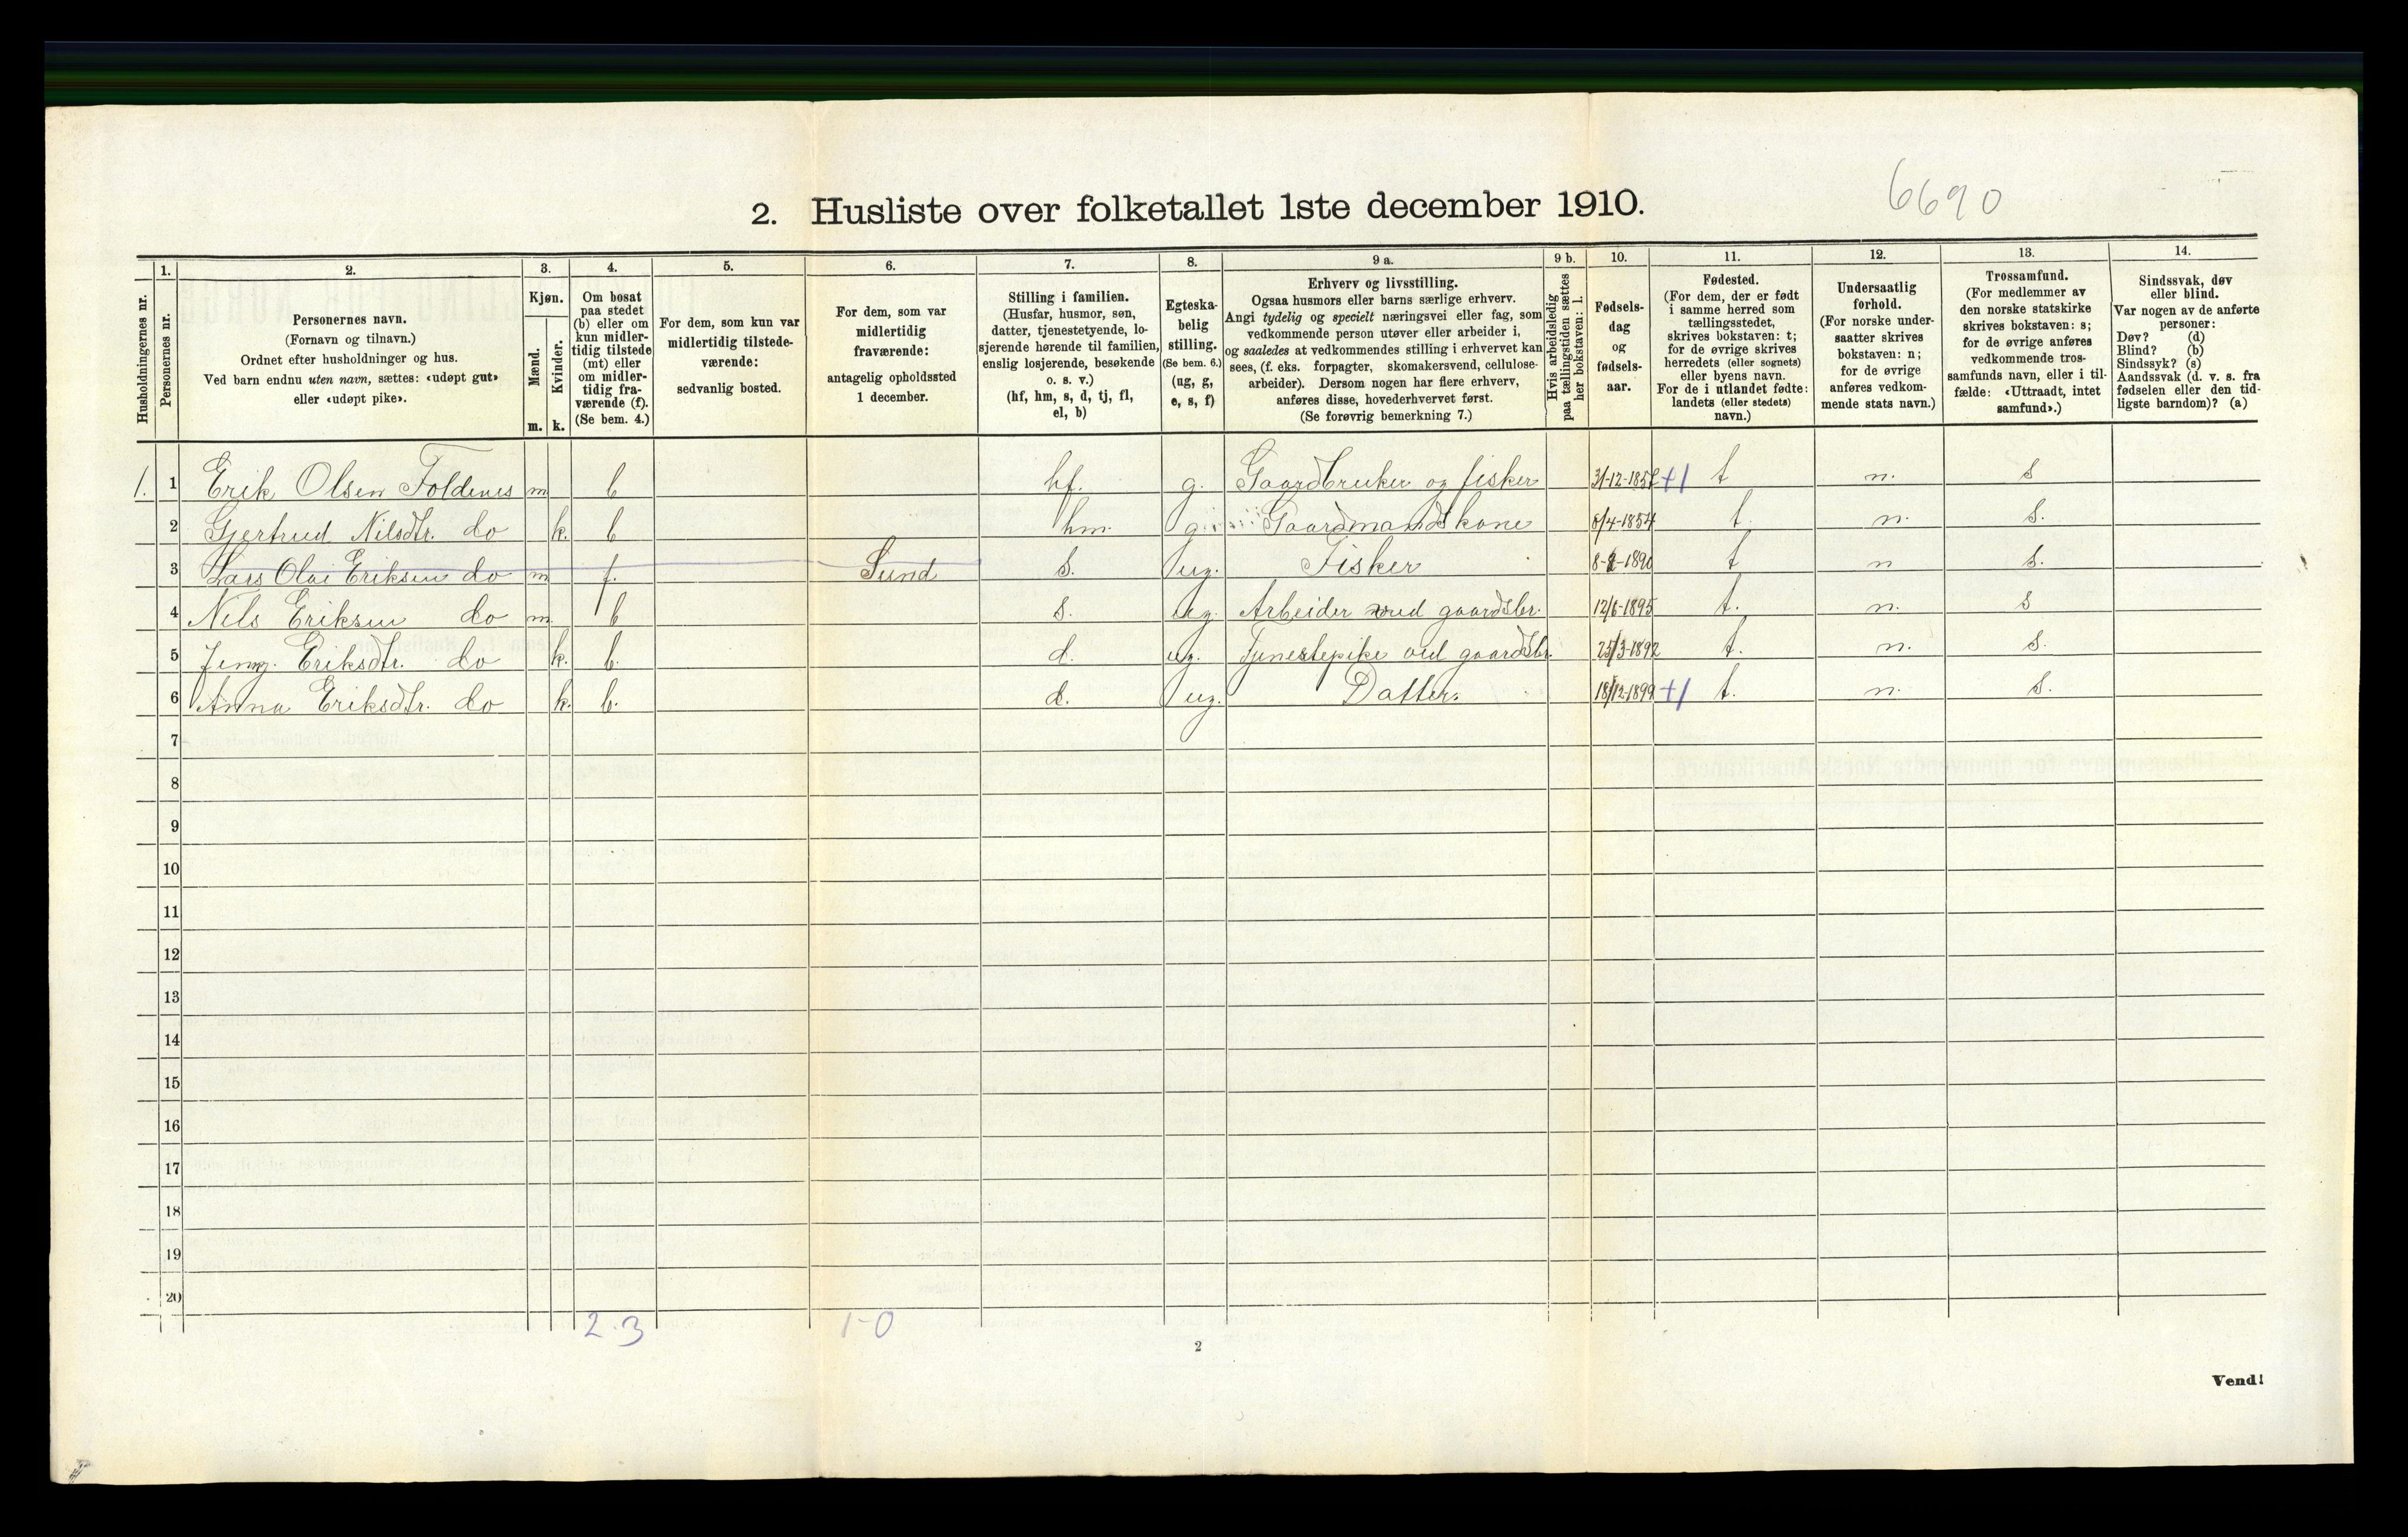 6690
2. Husliste over folketallet 1ste december 1910.
Husholdningernes nr.
1.
Personernes nr.
2.
Personernes navn.
(Fornavn og tilnavn.)
Ordnet efter husholdninger og hus.
Ved barn endnu uten navn, sættes: «udøpt gut»
eller «udøpt pike».
3.
Kjøn.
Mænd.
Kvinder.
m. k.
4.
Om bosat
paa stedet
(b) eller om
kun midler-
tidig tilstede
(mt) eller
om midler-
tidig fra-
værende (f).
(Se bem. 4.)
5.
For dem, som kun var
midlertidig tilstede-
værende:
sedvanlig bosted.
6.
For dem, som var
midlertidig
fraværende:
antagelig opholdssted
1 december.
7.
Stilling i familien.
(Husfar, husmor, søn,
datter, tjenestetyende, lo-
sjerende hørende til familien,
enslig losjerende, besøkende
o. s. v.)
(hf, hm, s, d, tj, fl,
el, b)
8.
Egteska-
belig
stilling.
(Se bem. 6.)
(ug, g,
e, s, f)
9 a.
Erhverv og livsstilling.
Ogsaa husmors eller barns særlige erhverv.
Angi tydelig og specielt næringsvei eller fag, som
vedkommende person utøver eller arbeider i,
og saaledes at vedkommendes stilling i erhvervet kan
sees, (f. eks. forpagter, skomakersvend, cellulose-
arbeider). Dersom nogen har flere erhverv,
anføres disse, hovederhvervet først.
(Se forøvrig bemerkning 7.)
9 b.
Hvis arbeidsledig
paa tællingstiden sættes
her bokstaven: l.
10.
Fødsels-
dag
og
fødsels-
aar.
11.
Fødested.
(For dem, der er født
i samme herred som
tællingsstedet,
skrives bokstaven: t;
for de øvrige skrives
herredets (eller sognets)
eller byens navn.
For de i utlandet fødte:
landets (eller stedets)
navn.)
12.
Undersaatlig
forhold.
(For norske under-
saatter skrives
bokstaven: n;
for de øvrige
anføres vedkom-
mende stats navn.)
13.
Trossamfund.
(For medlemmer av
den norske statskirke
skrives bokstaven: s;
for de øvrige anføres
vedkommende tros-
samfunds navn, eller i til-
fælde: «Uttraadt, intet
samfund».)
14.
Sindssvak, døv
eller blind.
Var nogen av de anførte
personer:
Døv? (d)
Blind? (b)
Sindssyk? (s)
Aandssvak (d. v. s. fra
fødselen eller den tid-
ligste barndom)? (a)
1. 1 Erik Olsen Foldenes m b hf. g. Gaardbruker og fisker 31-12-1857 +1 t n. s
2 Gjertrud Nilsdtr. do k. b hm. g. Gaardmandskone 8/4-1854 t. n. s.
3 Lars Olai Eriksen do m f. Sund s. ug. Fisker 8-2-1890 t n s.
4 Nils Eriksen do m. b s. ug. Arbeider ved gaardsbr. 12/6-1895 t. n. s
5 Jenny. Eriksdtr. do k. b. d. ug. Tjenestepike ved gaardsbr. 25/3-1892 t. n. s.
6 Anna Eriksdtr. do k. b. d. ug. Datter. 18/12-1899 +1 t. n. s.
7
8
9
10
11
12
13
14
15
16
17
18
19
20
2.3 1-0
2
Vend!